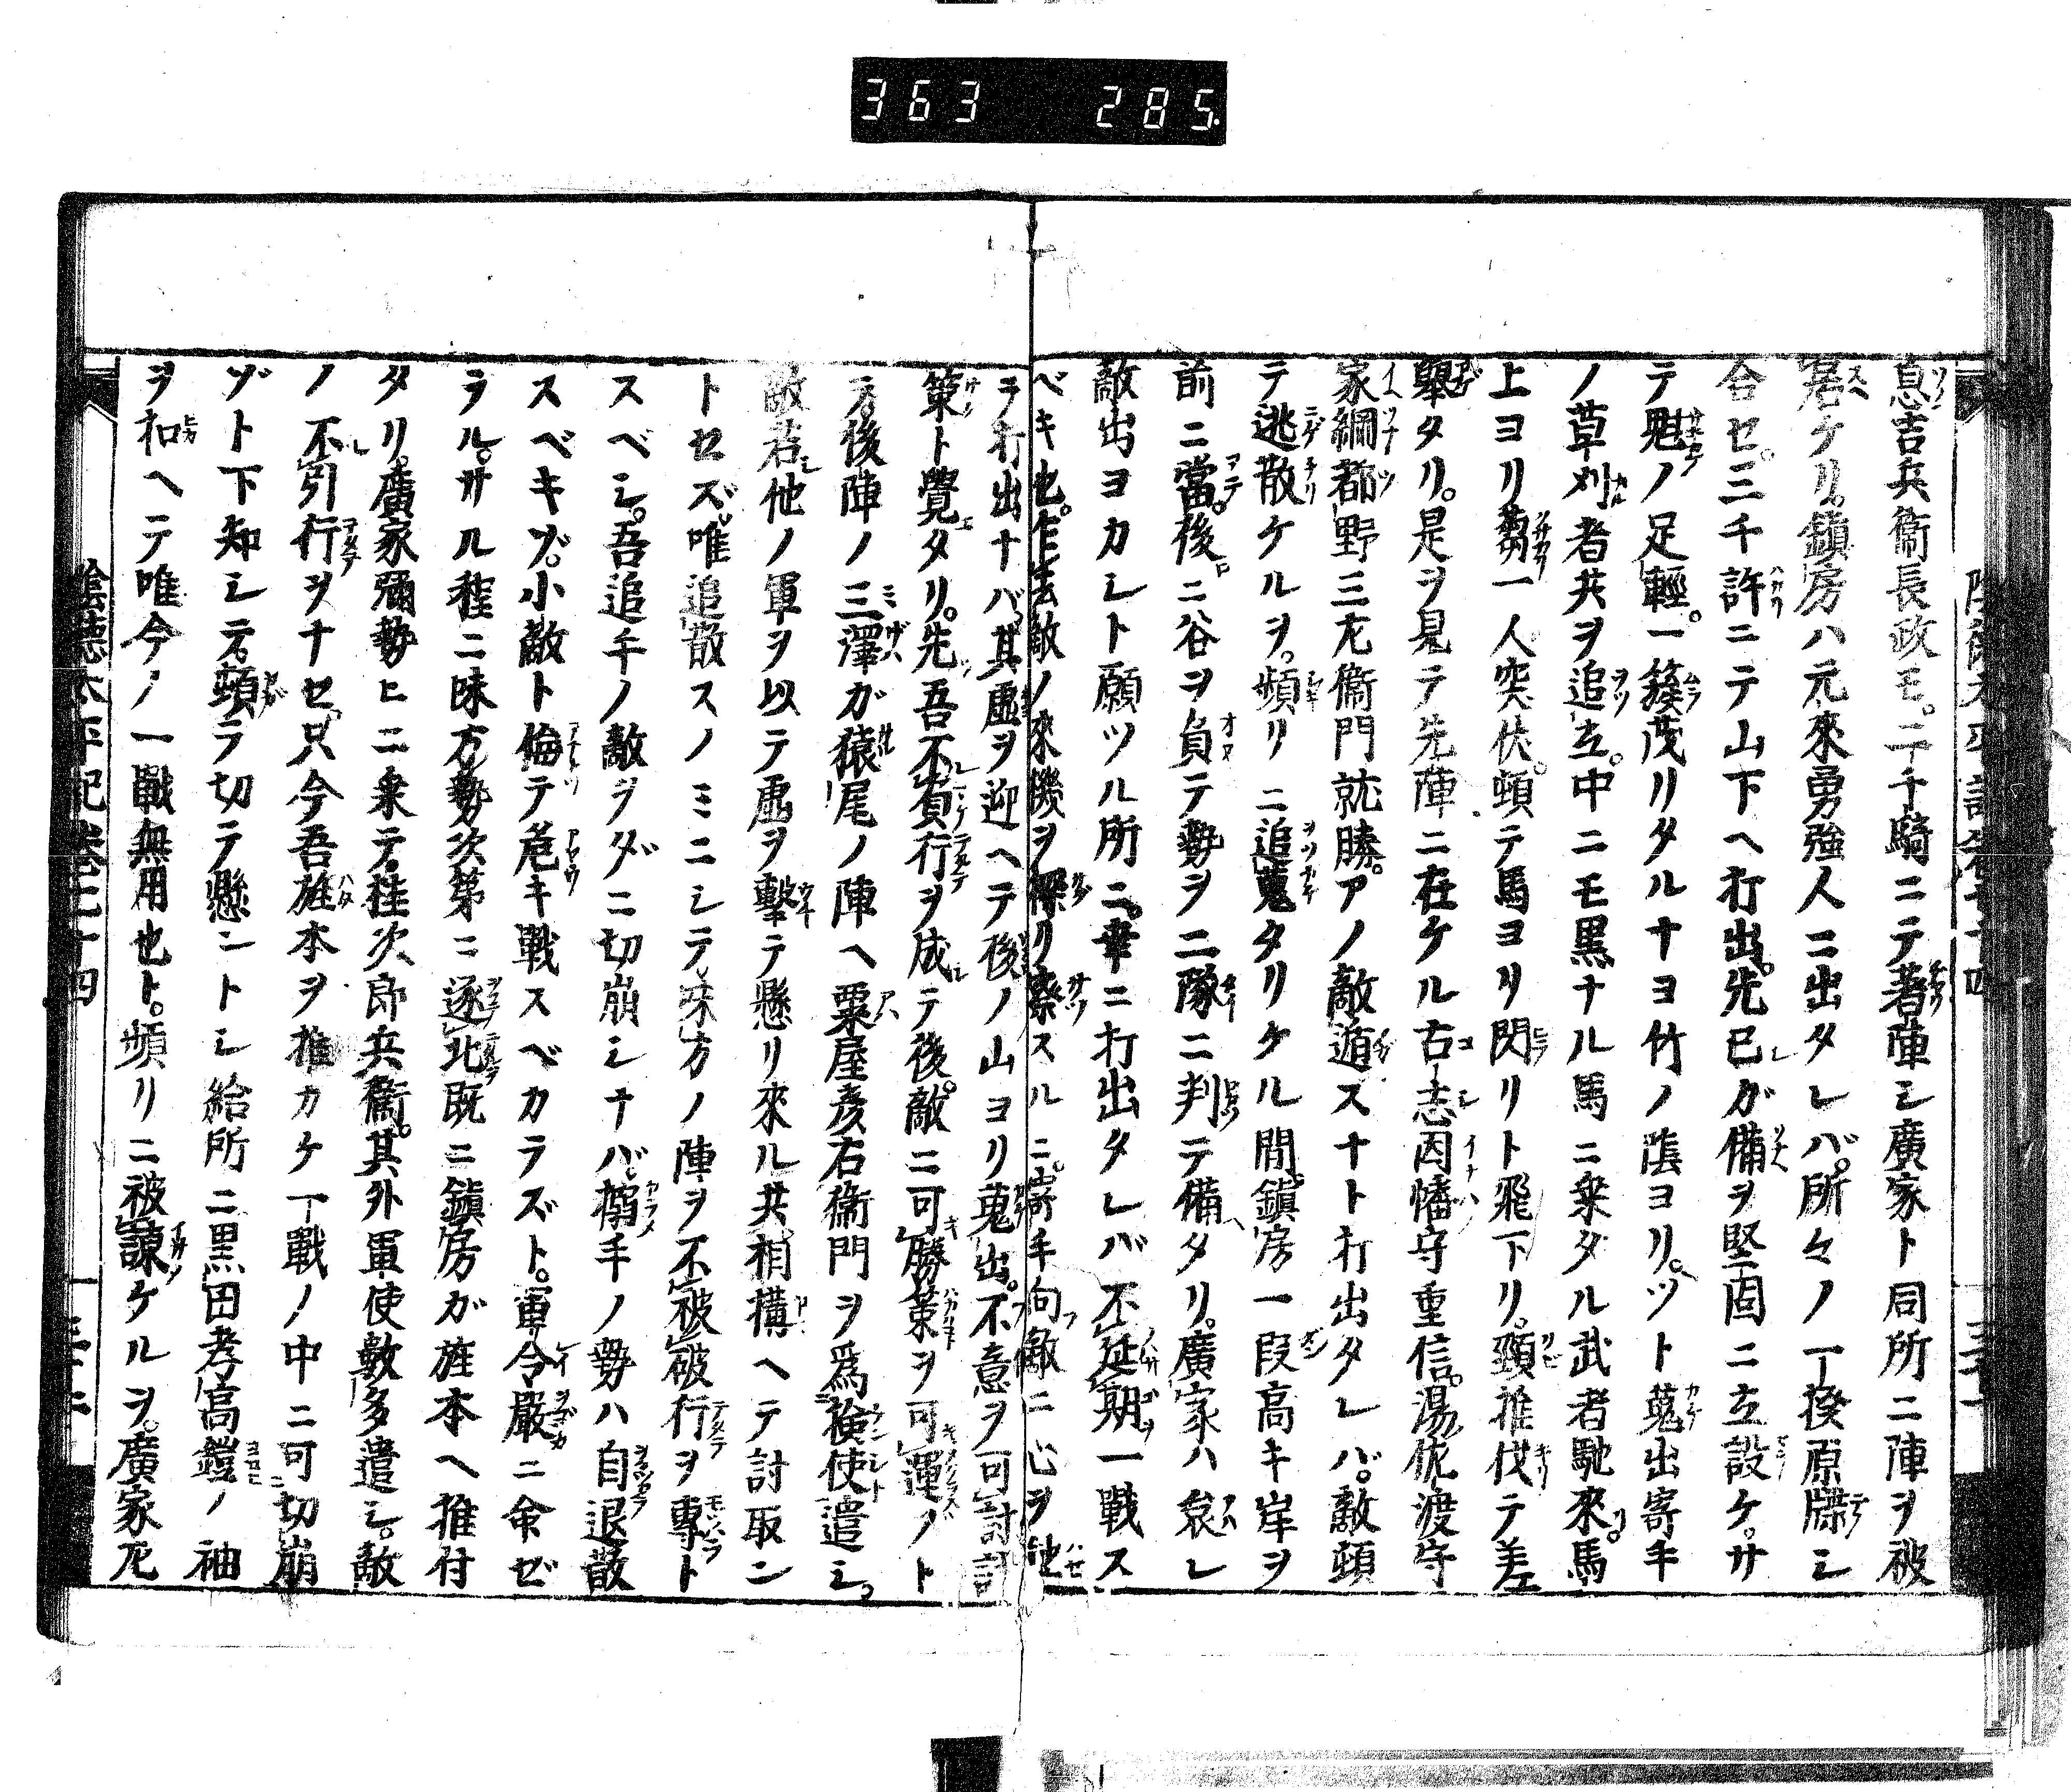 363 285.
息吉兵衞長政モ。二千騎ニテ著陣シ廣家ト同所ニ陣ヲ被
居ケリ。鎮房ハ元來勇強人ニ出タレバ。所々ノ一揆原牒シ
合セ。三千許ニテ山下ヘ打出。先已ガ備ヲ堅固ニ立設ケ。サ
テ魁ノ足輕。一簇茂リタルナヨ竹ノ陰ヨリ。ツト蒐出寄手
ノ草刈者共ヲ追立。中ニモ黒ナル馬ニ乘タル武者馳來。馬
上ヨリ蒭一人突伏。頓テ馬ヨリ閃リト飛下リ。頸推伐テ差
擧タリ。是ヲ見テ先陣ニ在ケル古志因幡守重信。湯佐渡守
家綱都野三左衞門就勝。アノ敵遁スナト打出タレバ。敵頭
テ逃散ケルヲ。頻リニ追蒐タリケル間。鎮房一段高キ岸ヲ
前ニ當。後ニ谷ヲ負テ勢ヲ二隊ニ判テ備タリ。廣家ハ哀レ
敵出ヨカシト願ツル所ニ。幸ニ打出タレバ不延期一戰ス
ベキ也。乍去敵ノ來機ヲ探リ察スルニ。寄手向敵ニ心ヲ
ラ打出ナバ。其虚ヲ迎ヘテ後ノ山ヨリ蒐出。不意ヲ可討
策ト覺タリ。先吾不負行ヲ成テ後。敵ニ可勝策ヲ可運ノト
テ。後陣ノ三澤ガ猿尾ノ陣ヘ粟屋彦右衞門ヲ爲檢使遣シ。
敵若他ノ軍ヲ以テ虚ヲ擊テ懸リ來ル共相構ヘテ討取ン
トセズ。唯追散スノミニシテ味方ノ陣ヲ不被破行ヲ專ト
スベシ。吾追手ノ敵ヲダニ切崩シナバ。搦手ノ勢ハ自退散
スベキゾ。小敵ト侮テ危キ戰スベカラズト。軍令嚴ニ命ゼ
ラル。サル程ニ味方勢次第ニ逐北既ニ鎮房ガ旌本ヘ推付
タリ。廣家彌勢ヒニ乘テ。桂次郎兵衞。其外軍使數多遣シ。敵
ノ不引行ヲナセ。只今吾旌本ヲ推カケ一戰ノ中ニ可切崩
ゾト下知シテ。頓ラ切テ懸ントシ給所ニ黒田孝高鎧ノ袖
ヲ扣ヘテ唯今ノ一戰無用也ト。頻リニ被諫ケルヲ。廣家左
陰德太平記卷七十四